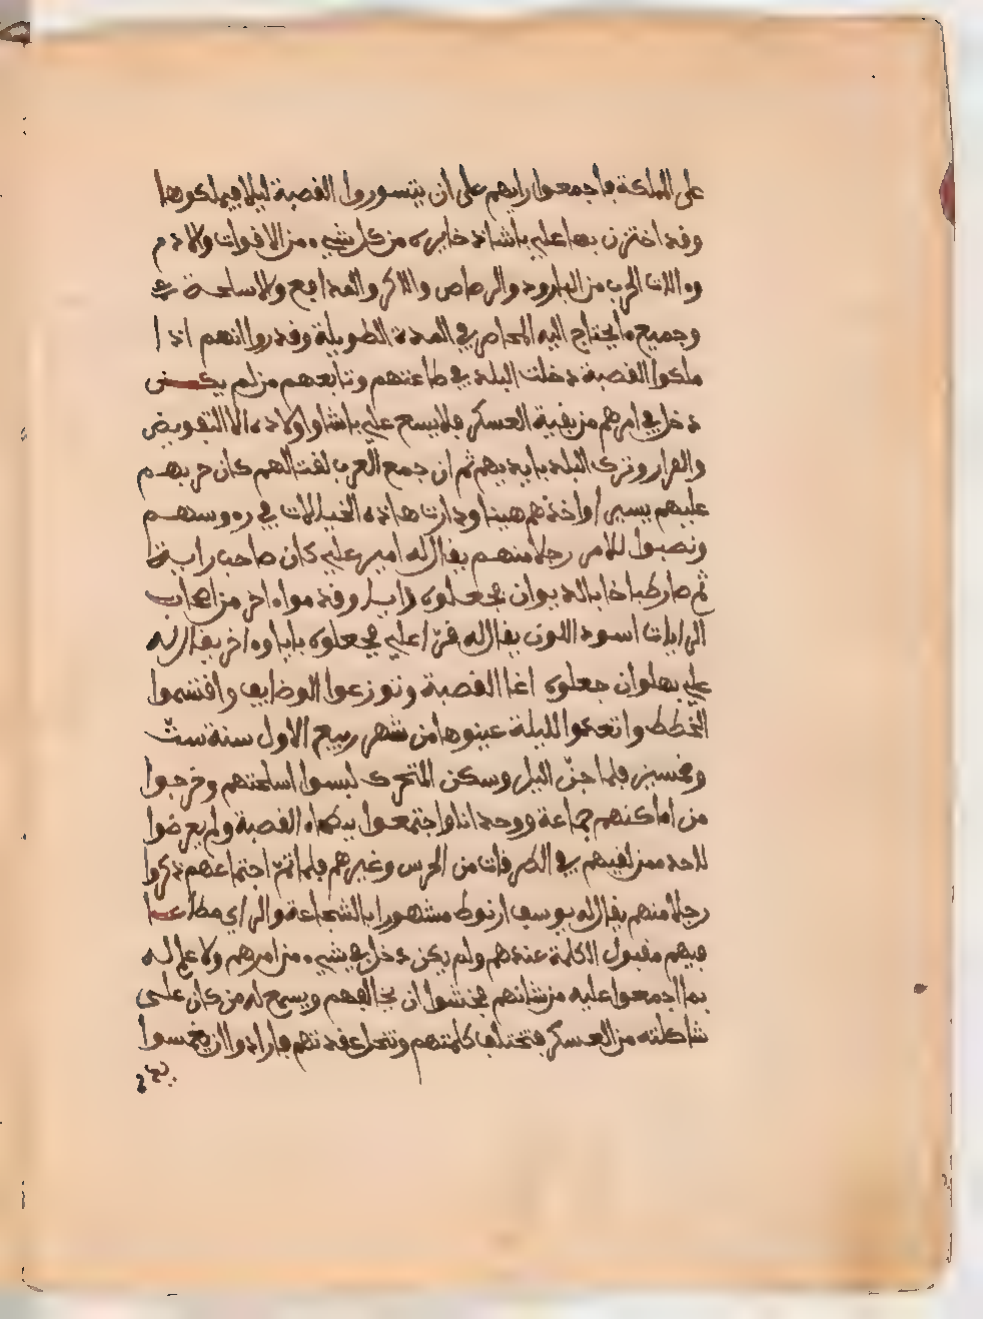 على المملكة فاجمعوا رايهم على ان يتسوروا القصبة ليلا فيملكوها
وقد اختزن بها علي باشا ذخايره من كل شيء من الاقوات والادم
وءالات الحرب من البارود والرصاص والاكر والمدافع والاسلحة
وجميع ما يحتاج اليه المحاصر في المدة الطويلة وقدروا انهم اذا
ملكوا القصبة دخلت البلد في طاعتهم وتابعهم من لم يكن
دخل في امرهم من بقية العسكر فلا يسع علي باشا واولاده الا التقويض
والفرار وترك البلد بايديهم ثم ان جمع العرب لقتالهم كان حربهم
عليهم يسيرا واخذهم هينا ودارت هاذه الخيالات في رءوسهم
ونصبوا للامر رجلا منهم يقال له امير علي كان صاحب راية
ثم صار طباخا بالديوان فجعلوه دايا وقدموا ءاخر من اصحاب
الرايات اسود اللون يقال له قرا علي فجعلوه بابا وءاخر يقال له
علي بهلوان جعلوه اغا القصبة وتوزعوا الوظايف واقتسموا
الخطط واتعدوا لليلة عينوها من شهر ربيع الاول سنة ست
وخمسين فلما جن اليل وسكن المتحرك لبسوا اسلحتهم وخرجوا
من اماكنهم جماعة ووحدانا واجتمعوا ببطحاء القصبة ولم يعرضوا
لاحد ممن لقيهم في الطرقات من الحرس وغيرهم فلما تم اجتماعهم ذكروا
رجلا منهم يقال له يوسف ارنوط مشهورا بالشجاعة والراي مطاعا
فيهم مقبول الكلمة عندهم ولم يكن دخل في شيء من امرهم ولا علم له
بما اجمعوا عليه من شانهم فخشوا ان يخالفهم ويسمع له من كان على
شاكلته من العسكر فتختلف كلمتهم وتنحل عقدتهم فارادوا ان يغمسوا